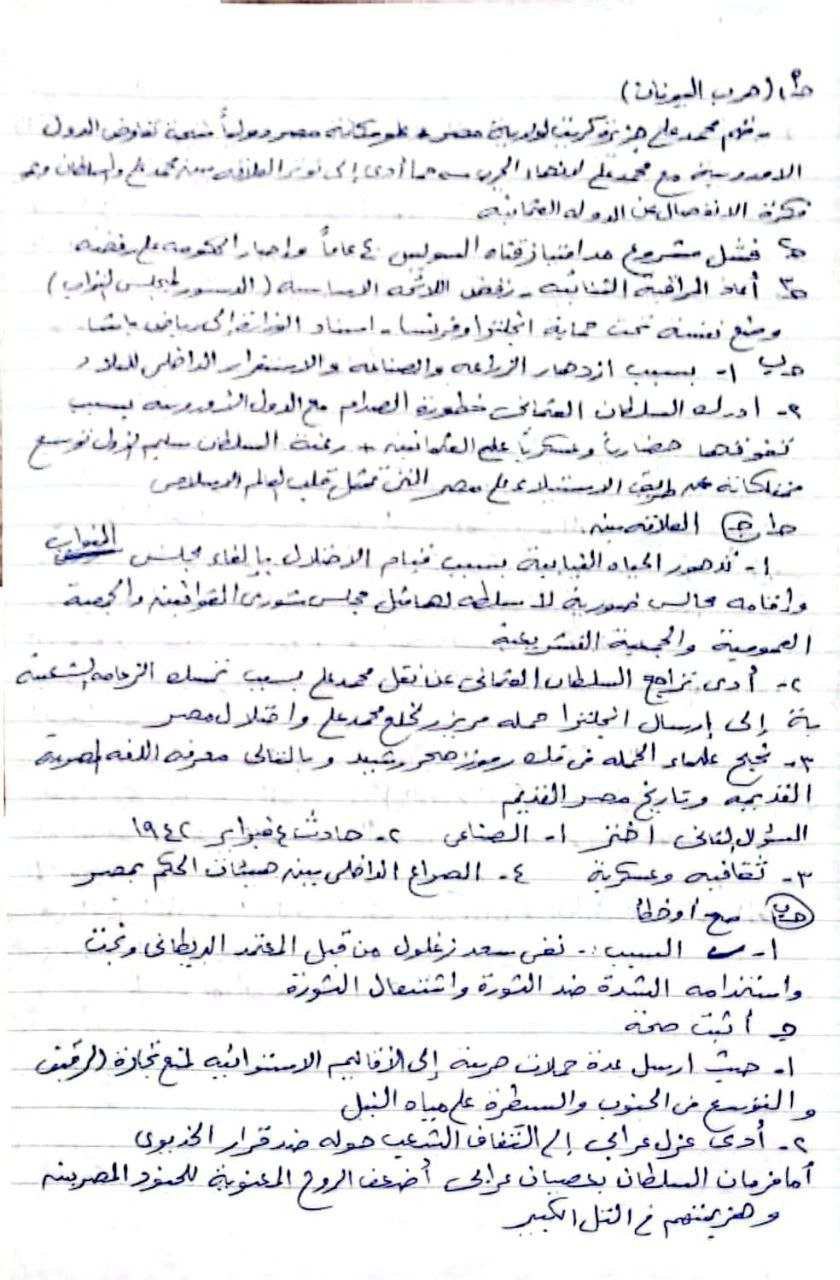 ج١ (حرب اليونان)
- ضم محمد علي جزيرة كريت لولاية مصر + علو مكانة مصر دولياً نتيجة تفاوض الدول
الاوروبية مع محمد علي لانهاء الحرب مما أدى إلى توتر العلاقه بين محمد علي والسلطان
فكرة الانفصال عن الدوله العثمانيه
ج٢ فشل مشروع مد امتياز قناه السويس ٤٠ عاماً واجبار الحكومه على رفضه
ج٣ أعاد المراقبة الثنائيه - رفض اللائحه الاساسيه (الدستور لمجلس النواب)
وضع نفسه تحت حماية انجلترا وفرنسا - اسناد الوزارة إلى رياض باشا
ج ب ١- بسبب ازدهار الزراعه والصناعه والاستقرار الداخلى للبلاد
٢- ادرك السلطان العثمانى خطورة الصدام مع الدول الاوروبيه بسبب
تفوقها حضارياً وعسكرياً على العثمانيين + رغبة السلطان سليم الاول توسيع
ممتلكاته عن طريق الاستيلاء على مصر التى تمثل قلب العالم الاسلامى
ج١ (ج) العلاقه بين
١- تدهور الحياه النيابية بسبب قيام الاحتلال بإلغاء مجلس النواب
واقامه مجالس صورية لا سلطه لها مثل مجلس شورى القوانين والجمعية
العمومية والجمعية التشريعية
٢- أدى تراجع السلطان العثمانى عن نقل محمد علي بسبب تمسك الزعامه الشعبية
به إلى إرسال انجلترا حمله فريزر لخلع محمد علي واحتلال مصر
٣- نجح علماء الحمله فى فك رموز حجر رشيد وبالتالى معرفه اللغه المصرية
القديمه وتاريخ مصر القديم
السؤال الثانى اختر ١- الصناعى ٢- حادث ٤ فبراير ١٩٤٢
٣- ثقافيه وعسكرية ٤- الصراع الداخلى بين هيئات الحكم بمصر
(ب) صح أو خطأ
١- السبب :- نفى سعد زغلول من قبل المعتمد البريطانى ونجت
واستخدامه الشدة ضد الثورة واشتعال الثورة
ج أثبت صحة
١- حيث ارسل عدة حملات حربية إلى الأقاليم الاستوائيه لمنع تجارة الرقيق
والتوسع فى الجنوب والسيطرة على مياه النيل
٢- أدى عزل عرابى إلى التفاف الشعب حوله ضد قرار الخديوى
أما فرمان السلطان بعصيان عرابى أضعف الروح المعنوية للجنود المصريين
وهزيمتهم فى التل الكبير